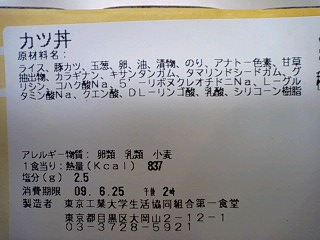 カツ丼
原材料名:
ライス、豚カツ、玉葱、卵、油、漬物、のり、アナトー色素、甘草
抽出物、カラギナン、キサンタンガム、タマリンドシードガム、グ
リシン、コハク酸Na、5'-リボヌクレオチドNa、L-グル
タミン酸Na、クエン酸、DL-リンゴ酸、乳酸、シリコーン樹脂
アレルギー物質: 卵類 乳類 小麦
1食当り:熱量(Kcal) 837
塩分(g) 2.5
消費期限 09.6.25 午後 2時
製造者 東京工業大学生活協同組合第一食堂
東京都目黒区大岡山2-12-1
03-3728-5921